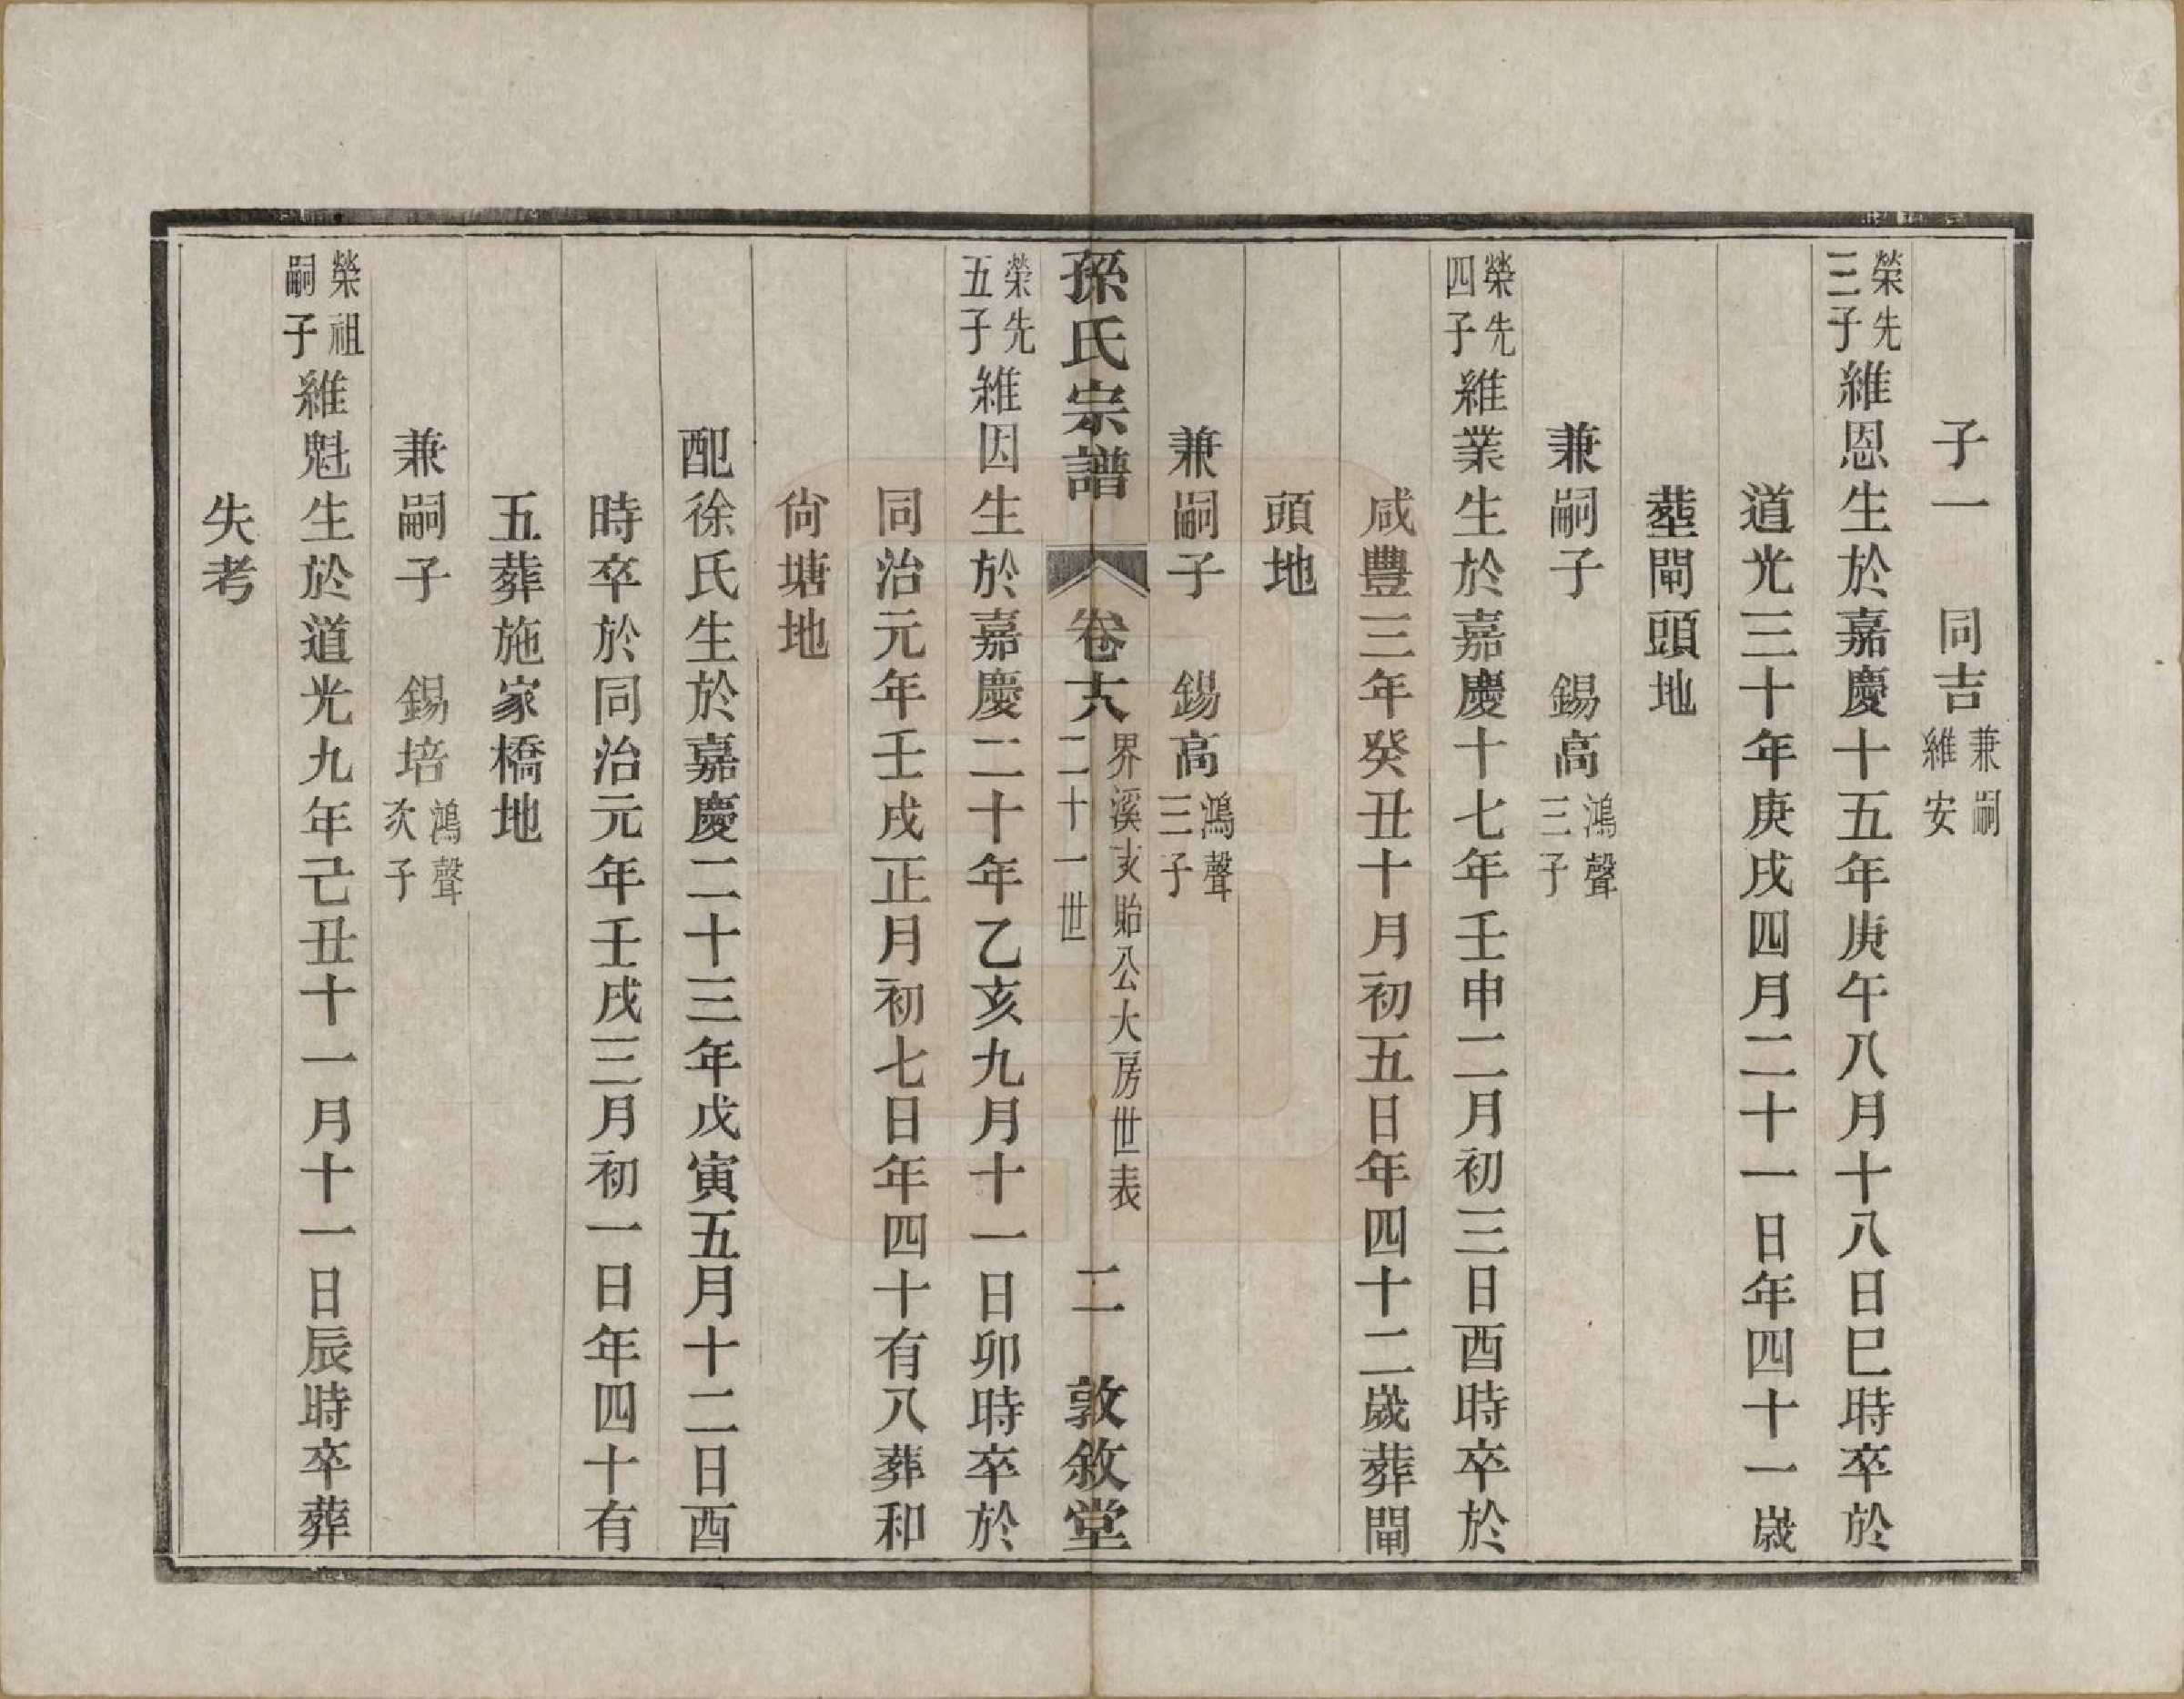 子一　同吉兼嗣維安
榮先三子維恩生於嘉慶十五年庚午八月十八日巳時卒於
道光三十年庚戌四月二十一日年四十一歲
塟閘頭地
兼嗣子　錫高鴻聲三子
榮先四子維業生於嘉慶十七年壬申二月初三日酉時卒於
咸豐三年癸丑十月初五日年四十二歲葬閘
頭地
兼嗣子　錫高鴻聲三子
孫氏宗譜　卷六　界溪亥貽公大房世表二十一世　二　敦敘堂
榮先五子維因生於嘉慶二十年乙亥九月十一日卯時卒於
同治元年壬戌正月初七日年四十有八葬和
尙塘地
配徐氏生於嘉慶二十三年戊寅五月十二日酉
時卒於同治元年壬戌三月初一日年四十有
五葬施家橋地
兼嗣子　錫培鴻聲次子
榮祖嗣子維魁生於道光九年己丑十一月十一日辰時卒葬
失考